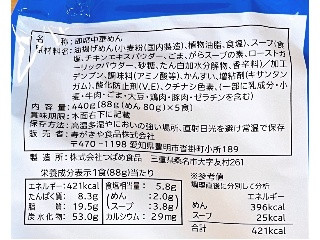 名称：即席中華めん
原材料名：油揚げめん(小麦粉(国内製造)、植物油脂、食塩)、スープ(食
塩、チキンエキスパウダー、ごま、がらスープの素、ローストガ
ーリックパウダー、砂糖、たん白加水分解物、香辛料)／加工
デンプン、調味料(アミノ酸等)、かんすい、増粘剤(キサンタン
ガム)、酸化防止剤(V.E)、クチナシ色素、(一部に乳成分・小
麦・牛肉・ごま・大豆・鶏肉・豚肉・ゼラチンを含む)
内容量：440g(88g(めん80g)×5食)
賞味期限：本面右下に記載
保存方法：高温多湿やにおいの強い場所、直射日光を避け常温で保存
販売者：寿がきや食品株式会社
〒470－1198 愛知県豊明市沓掛町小所189
製造所：株式会社つばめ食品 三重県桑名市大字友村261
栄養成分表示1食(88g)当たり
エネルギー:421kcal 食塩相当量：5.8g
たんぱく質：8.3g めん：2.0g
脂質：19.5g スープ：3.8g
炭水化物：53.0g カルシウム：29mg
※参考値
調理直後に分別して分析
エネルギー
めん 396kcal
スープ 25kcal
421kcal